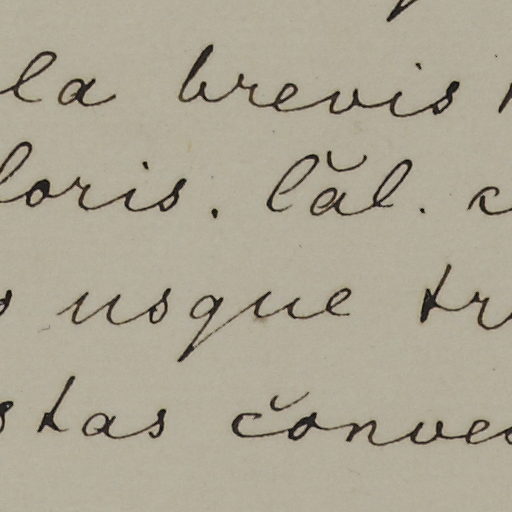 la brevis
loris. lăl. c
usque tr
stas c̆onve